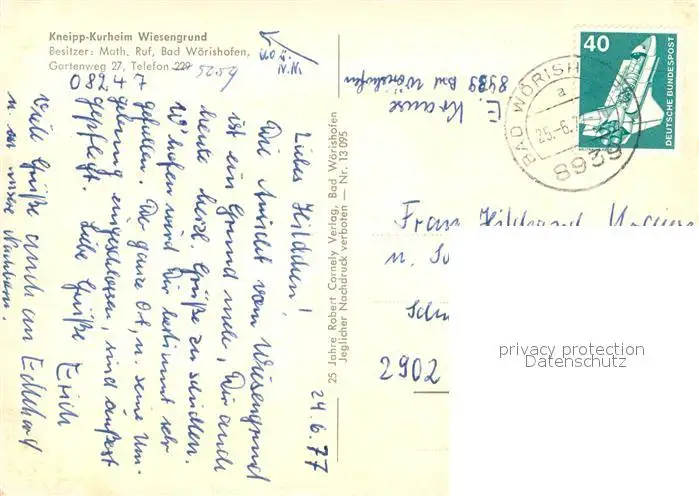 Kneipp-Kurheim Wiesengrund
Besitzer: Math. Ruf, Bad Wörishofen,
Gartenweg 27, Telefon 229 5259
08247
24.6.77
Liebes Hildchen!
Die Ansicht vom Wiesengrund
ist ein Grund mehr, Dir auch
heute herzl. Grüße zu schicken.
W'hofen wird Dir bestimmt sehr
gefallen. Der ganze Ort, u. seine Um-
gebung eingeschlossen, sind äußerst
gepflegt. Liebe Grüße
Erich
Viele Grüße auch an Eckehard
u. an unsere Nachbarn.
25 Jahre Robert Cornely Verlag, Bad Wörishofen
Jeglicher Nachdruck verboten — Nr. 13 095
E. Krause
8939 Bad Wörishofen
40
DEUTSCHE BUNDESPOST
BAD WÖRISH
a
25.-6.7
8939
Frau Hildegard
u.
2902
privacy protection
Datenschutz